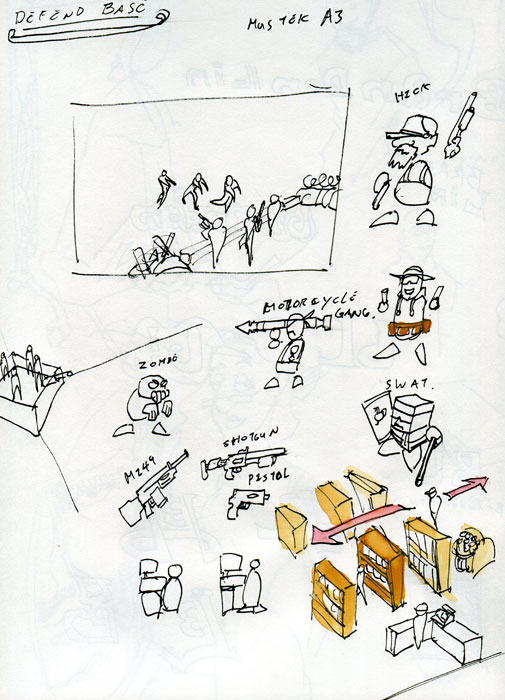 DEFEND BASE
MUSTEK A3
HICK
MOTORCYCLE
GANG.
ZOMBE
SWAT.
SHOTGUN
M249
PISTOL